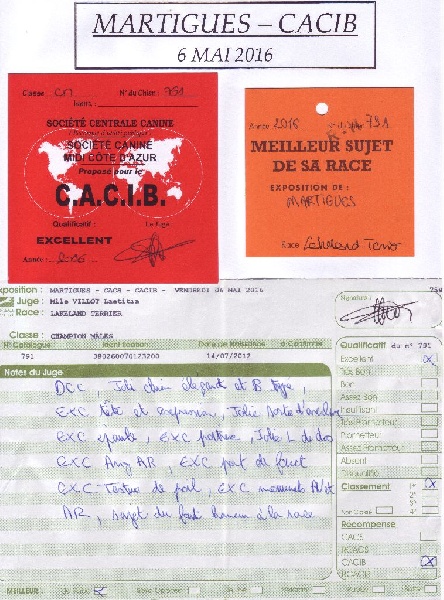 MARTIGUES – CACIB
6 MAI 2016
Classe : CH N° du Chien : 791
SOCIÉTÉ CENTRALE CANINE
SOCIÉTÉ CANINE
MIDI CÔTE D'AZUR
Proposé pour le
C.A.C.I.B.
Qualificatif : Le Juge
EXCELLENT
Année : 2016
Année 2016 791
MEILLEUR SUJET
DE SA RACE
EXPOSITION DE :
MARTIGUES
Race Lakeland Terrier
Exposition : MARTIGUES - CACS - CACIB - VENDREDI 06 MAI 2016
Juge : Mlle VILLOT Laetitia
Race : LAKELAND TERRIER
Signature :
Classe : CHAMPION MALES
N° Catalogue Identification Date de Naissance à Confirmer
791 14/07/2012
Qualificatif du n° 791
Notes du Juge
DCC Joli chien élégant et B type,
EXC tête et expression, Jolie
EXC épaule, EXC poitrine, Jolie L de dos
EXC Ang AR, EXC port de fouet
EXC Texture de poil, EXC mouvements AV et
AR, sujet du fait honneur à la race
Excellent
Très Bon
Bon
Assez Bon
Insuffisant
Très Prometteur
Prometteur
Assez Prometteur
Absent
Disqualifié
Classement
Non Classé
Récompense
CACS
RCACS
CACIB
RCACIB
MEILLEUR : de Race